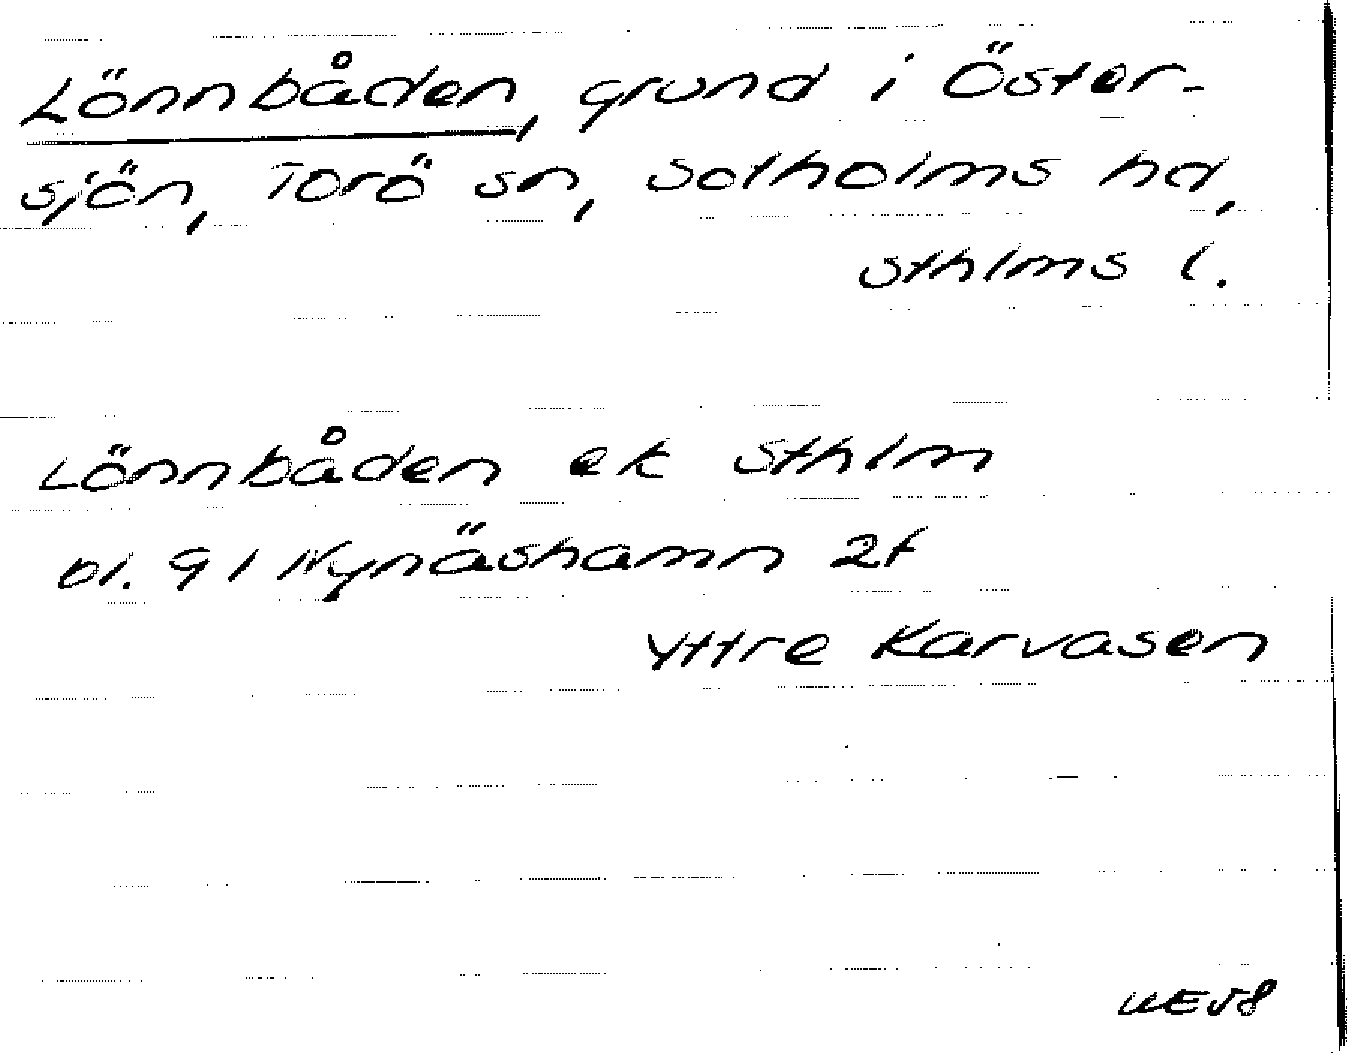 Lönnbåden, grund i Öster-
sjön, Torö sn, Sotholms hd,
Sthlms l.
Lönnbåden ek Sthlm
bl. 91 Nynäshamn 2f
Yttre Karvasen
UE58